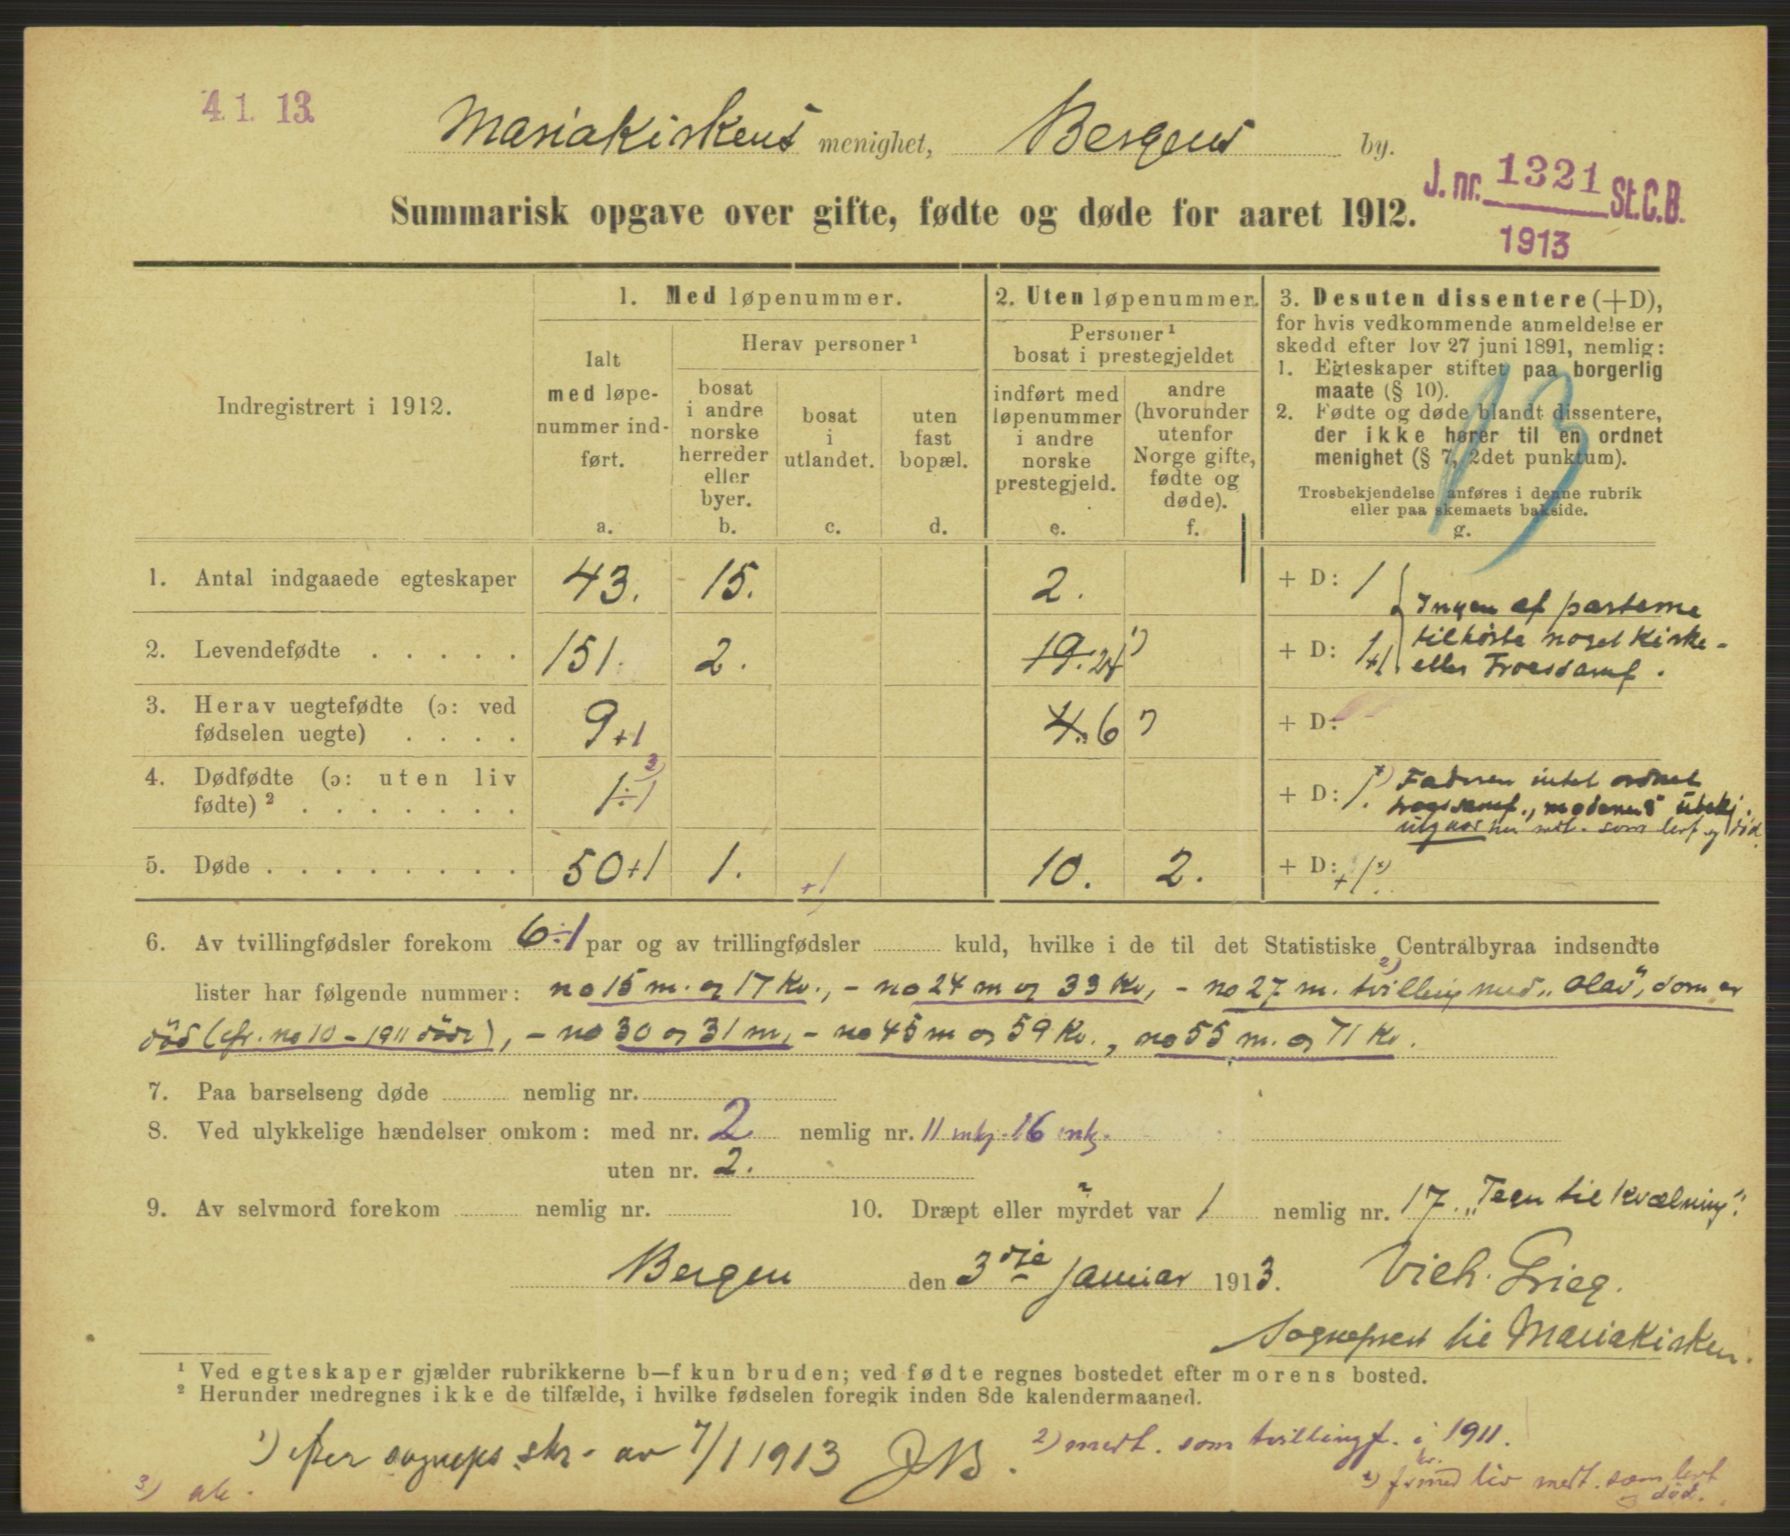 4. 1. 13.
Mariakirkens menighet, Bergens by.
J. nr. 1321 St. C. B.
1913
Summarisk opgave over gifte, fødte og døde for aaret 1912.
Indregistrert i 1912.
1. Med løpenummer.
Ialt
med løpe-
nummer ind-
ført.
a.
Herav personer ¹
bosat
i andre
norske
herreder
eller
byer.
b.
bosat
i
utlandet.
c.
uten
fast
bopæl.
d.
2. Uten løpenummer.
Personer ¹
bosat i prestegjeldet
indført med
løpenummer
i andre
norske
prestegjeld.
e.
andre
(hvorunder
utenfor
Norge gifte,
fødte og
døde).
f.
3. Desuten dissentere (+D),
for hvis vedkommende anmeldelse er
skedd efter lov 27 juni 1891, nemlig:
1. Egteskaper stiftet paa borgerlig
maate (§ 10).
2. Fødte og døde blandt dissentere,
der ikke hører til en ordnet
menighet (§ 7, 2det punktum).
Trosbekjendelse anføres i denne rubrik
eller paa skemaets bakside.
g.
13
1. Antal indgaaede egteskaper 43. 15. 2. + D: 1
2. Levendefødte . . . . . 151. 2. 19. 21 ¹) + D: 1+1
Ingen af parterne
tilhørte noget Kirke-
eller Troessamf.
3. Herav uegtefødte (ɔ: ved
fødselen uegte) . . . . 9+1 4. 6 ¹) + D:
4. Dødfødte (ɔ: uten liv
fødte) ² . . . . . . . 1÷1 ³) + D: 1. ˣ) Faderen intet ordnet
trossamf., moderens ubekj.
utgaar her medt. som levf. og død.
5. Døde . . . . . . . . 50+1 1. +1 10. 2. + D: +1 ˣ)
6. Av tvillingfødsler forekom 6÷1 par og av trillingfødsler kuld, hvilke i de til det Statistiske Centralbyraa indsendte
lister har følgende nummer: no 15 m. og 17 Kv., - no 24 m og 33 Kv, - no 27 m. tvilling med „Olav", som er ²)
død (cfr. no 10 - 1911 døde), - no 30 og 31 m, - no 45 m og 59 Kv., no 55 m. og 71 Kv.
7. Paa barselseng døde nemlig nr.
8. Ved ulykkelige hændelser omkom: med nr. 2 nemlig nr. 11 mk. 16 mk.
uten nr. 2.
9. Av selvmord forekom nemlig nr. 10. Dræpt eller myrdet var 1 nemlig nr. 17. „Tegn til kvælning".
Bergen den 3dje Januar 1913. Vilh. Grieg.
Sogneprest til Mariakirken.
¹ Ved egteskaper gjælder rubrikkerne b—f kun bruden; ved fødte regnes bostedet efter morens bosted.
² Herunder medregnes ikke de tilfælde, i hvilke fødselen foregik inden 8de kalendermaaned.
¹) efter sogneps skr. av 7/1 1913
²) medt. som tvillingf. i 1911.
³)
ˣ) født med liv medt. som levf.
og død.